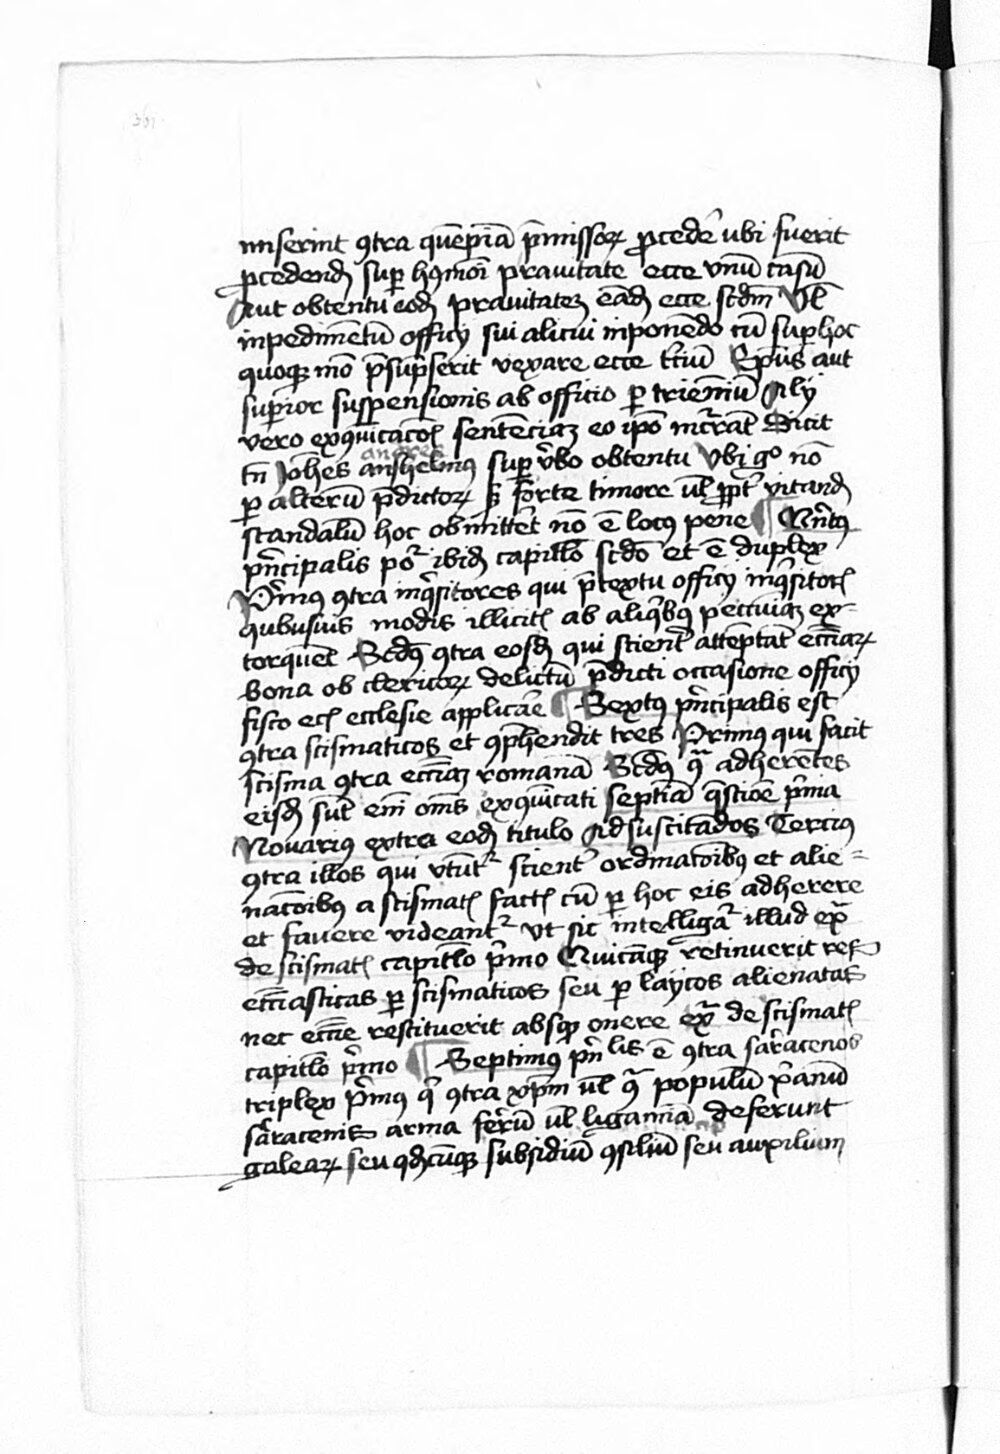 miserint ꝯtra quēpiā p̄missoꝝ ꝓcedē ubi fuerit
ꝓcedendū suꝑ hꝰmōi prauitate ecce vnū casū
Aut obtentu eoꝺ prauitateꝫ eāꝺ ecce scd̄m Vl̄
inpedimētū officij sui alicui inponēdo cū suꝑ hoc
quoqꝫ mō p̄sūpserit vexare ecce tʼciū Ep̄us aut
suꝑior suspensionis ab officio ꝑ trieniū Alij
vero exꝯuicacōis sentēciaꝫ eo ip̄o incʼrāt Dicit
tn̄ Joħes andree anshelmus suꝑ vʼbo obtentu Vbi gͦ nō
ꝑ alterū p̄dictoꝝ sꝫ forte timore ul̄ ꝓpt̄ vitandū
scandalū hoc obmittet nō ē locꝰ pene ¶ Qui̅tꝰ
pʼncipalis po͛ ibiꝺ capitl̄o scd̄o et ē duplex
Pʼmꝰ ꝯtra inqʼsitores qui p̄textu officij inqʼsitoris
qubusuis modis illicitis ab aliqʼbꝰ pecuniaꝫ ex-
torquēt Scd̄s ꝯtra eosꝺ qui scient͛ attēptāt eccīaꝝ
bona ob clericoꝝ delictū p̄dicti occasione officij
fisco ecī ecclesie applicāe ¶ Sextꝰ pʼncipalis est
ꝯtra scismaticos et ꝯp̄hendit tres Primꝰ qui facit
scisma ꝯtra eccīaꝫ romanā Scd̄s ꝯ̄ adherētes
eisꝺ sūt enī om̄s exꝯuicati septīa q̄stiōe pʼma
Nouariꝰ extra eoꝺ titulo Ad suscitādos Terciꝰ
ꝯtra illos qui vtūt͛ scient͛ ordinacōibꝰ et alie-
nacōibꝰ a scismatis factis cū ꝑ hoc eis adherere
et fauere videant͛ vt sic intelligat͛ illud exᵃ
de scismatis capitl̄o pʼmo Quicūqꝫ retinuerit res
eccīasticas ꝑ scismaticos seu ꝑ laycos alienatas
nec eccīe restituerit absqꝫ onere exᵃ de scismatis
capitl̄o pʼmo ¶ Septimꝰ pʼnlis ē ꝯtra sarʼacenos
triplex pʼmꝰ qʼ ꝯtra xp̄m ul̄ ꝯᵃ populū xʼanū
sarʼacenis arma ferʼū ul̄ ligamīa deferunt
galeaꝝ seu qꝺcūqꝫ subsidiū ꝯsiliū seu auxilium